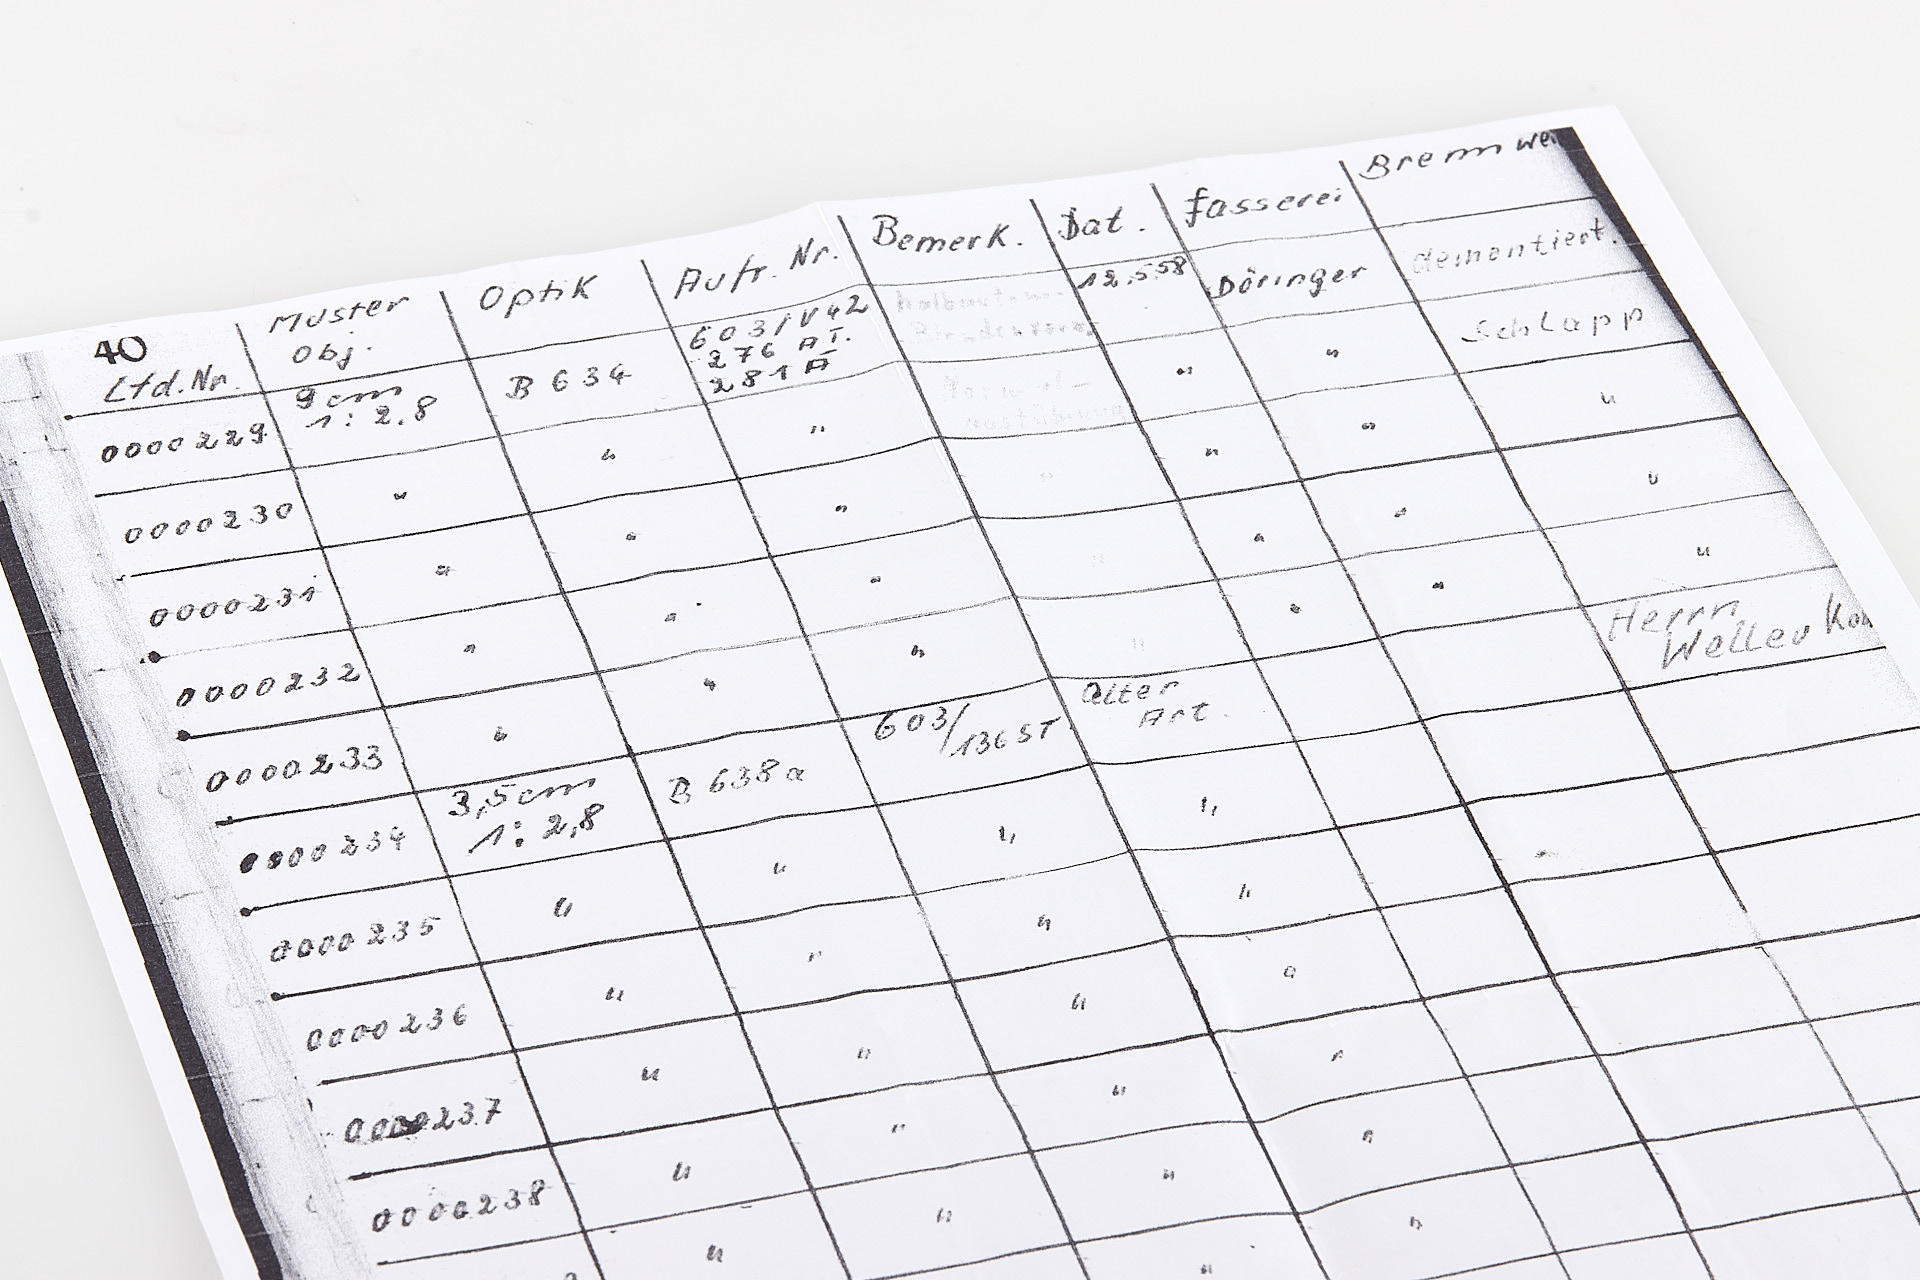 40
Lfd.Nr. Muster Obj. Optik Auftr. Nr. Bemerk. Dat. Fasserei
0000229 9cm 1:2.8 B 634 603/V42 276 AT. 281 A 12.5.58 Döringer dementiert.
0000230 " " " " " Schlapp
0000231 " " " " " " "
0000232 " " " " " " "
0000233 " " " " " " "
0000234 3,5cm 1:2,8 B 638a 603/136 ST. alter Art. Herrn
0000235 " " " "
0000236 " " " "
0000237 " " " "
0000238 " " " "
" " " "